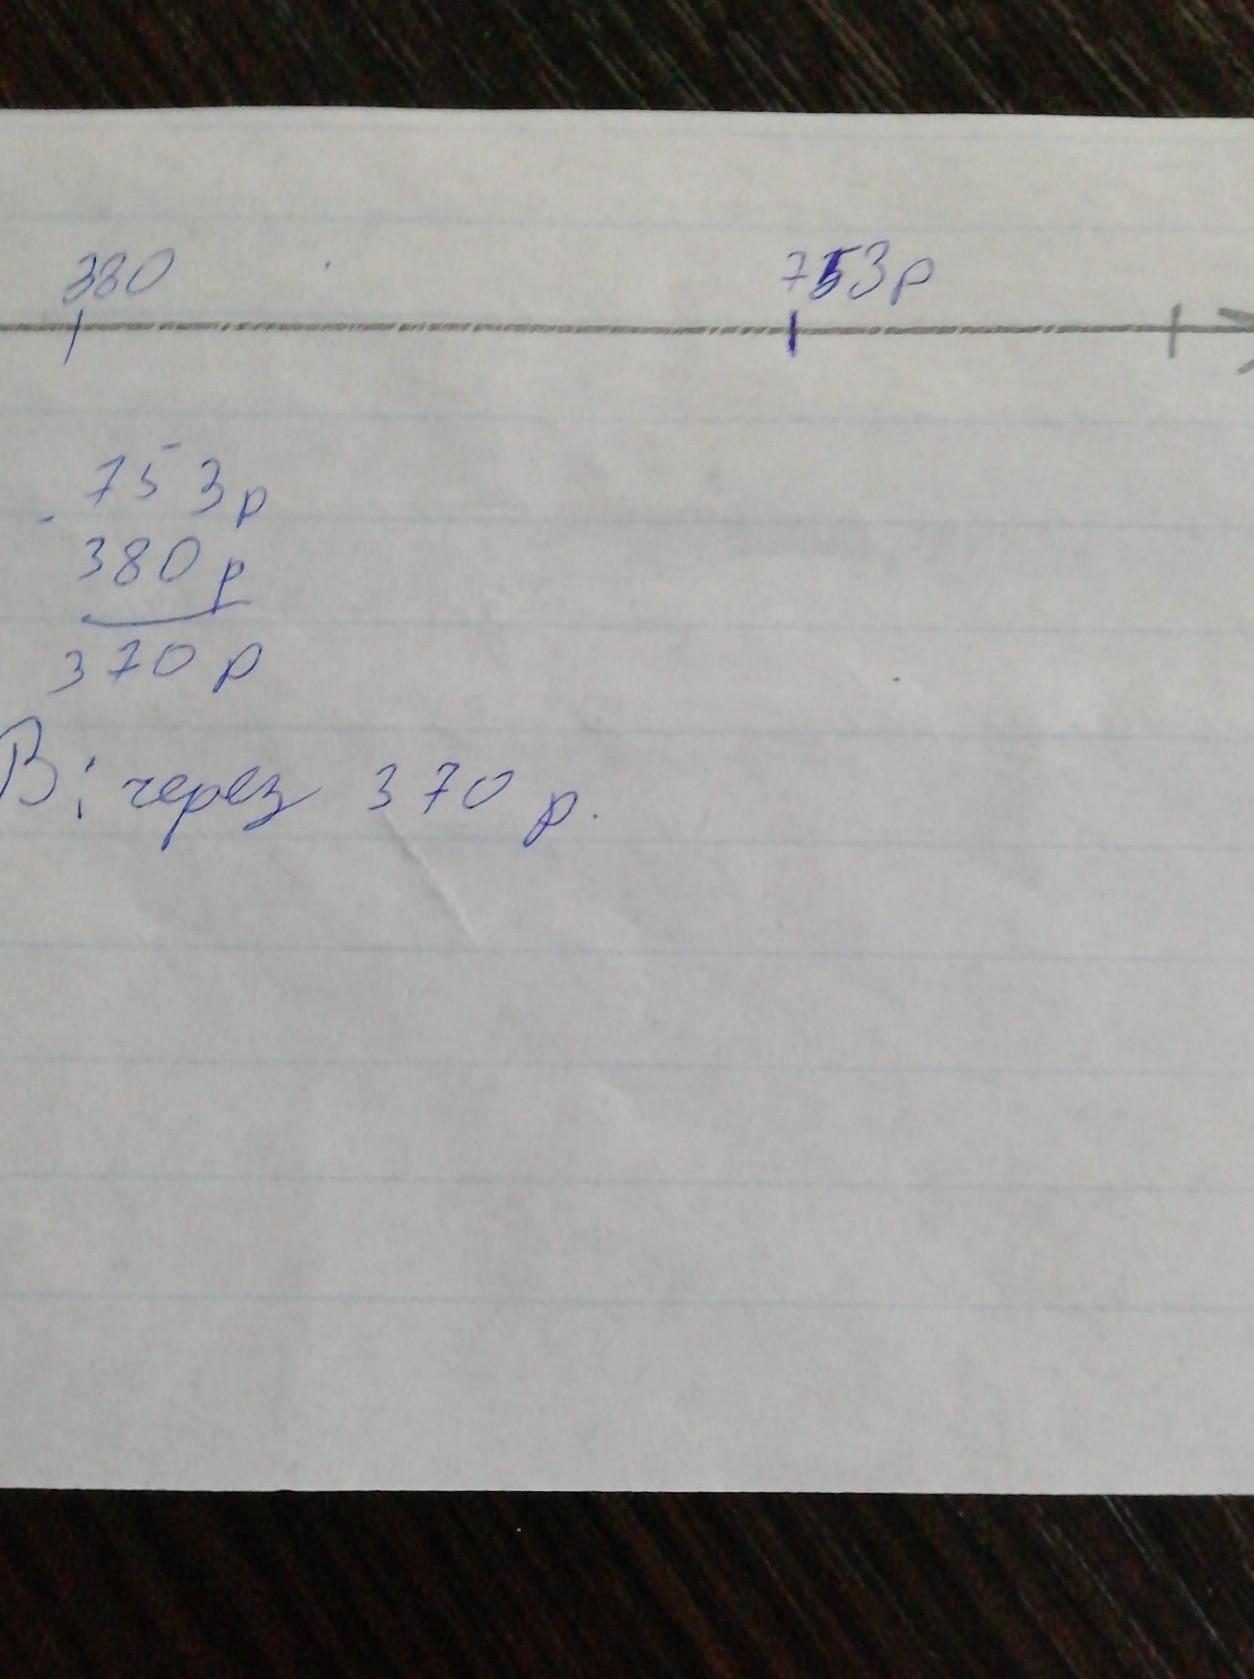 380 753р
- 753р
380р
370р
В: через 370 р.